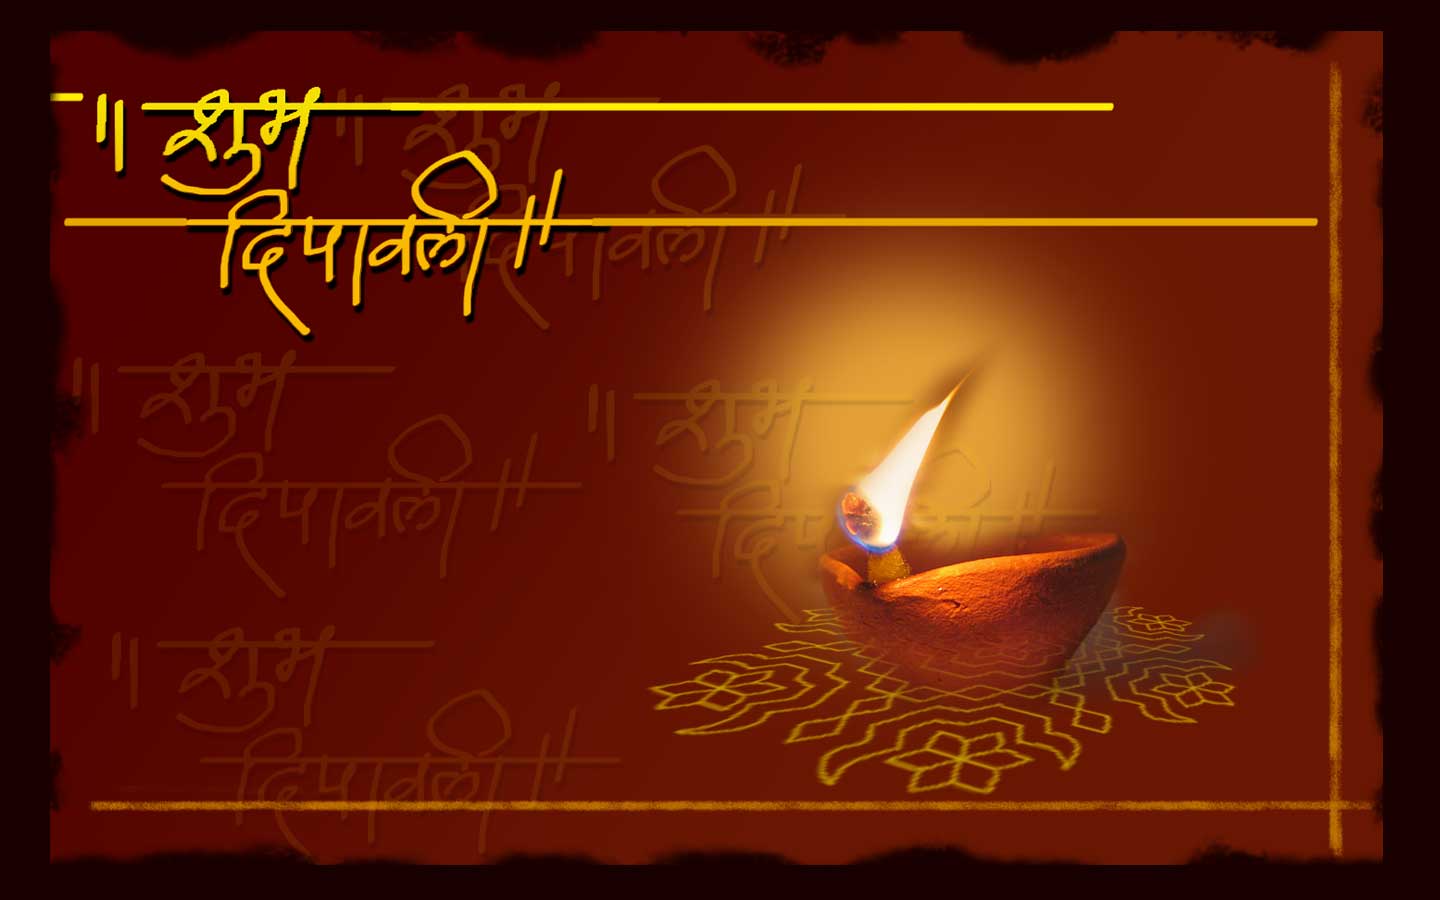 ॥ शुभ
दिपावली ॥
॥ शुभ
दिपावली ॥
॥ शुभ
दिपावली ॥
॥ शुभ
दिपावली ॥
॥ शुभ
दिपावली ॥